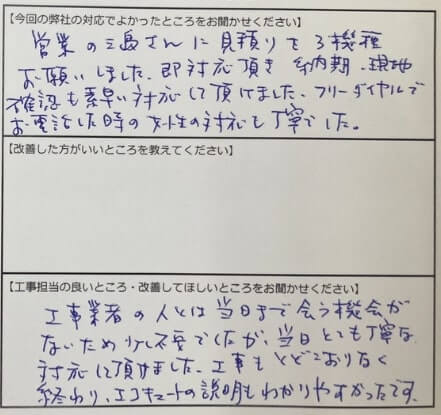 【今回の弊社の対応でよかったところをお聞かせください】
営業の三島さんに見積りを3機種
お願いしました。即対応頂き 納期、現地
確認も素早い対応して頂けました。フリーダイヤルで
お電話した時の女性の対応も丁寧でした。
【改善した方がいいところを教えてください】
【工事担当の良いところ・改善してほしいところをお聞かせください】
工事業者の人とは当日まで会う機会が
ないため少し不安でしたが、当日とても丁寧な
対応して頂けました。工事もとどこおりなく
終わり、エコキュートの説明もわかりやすかったです。